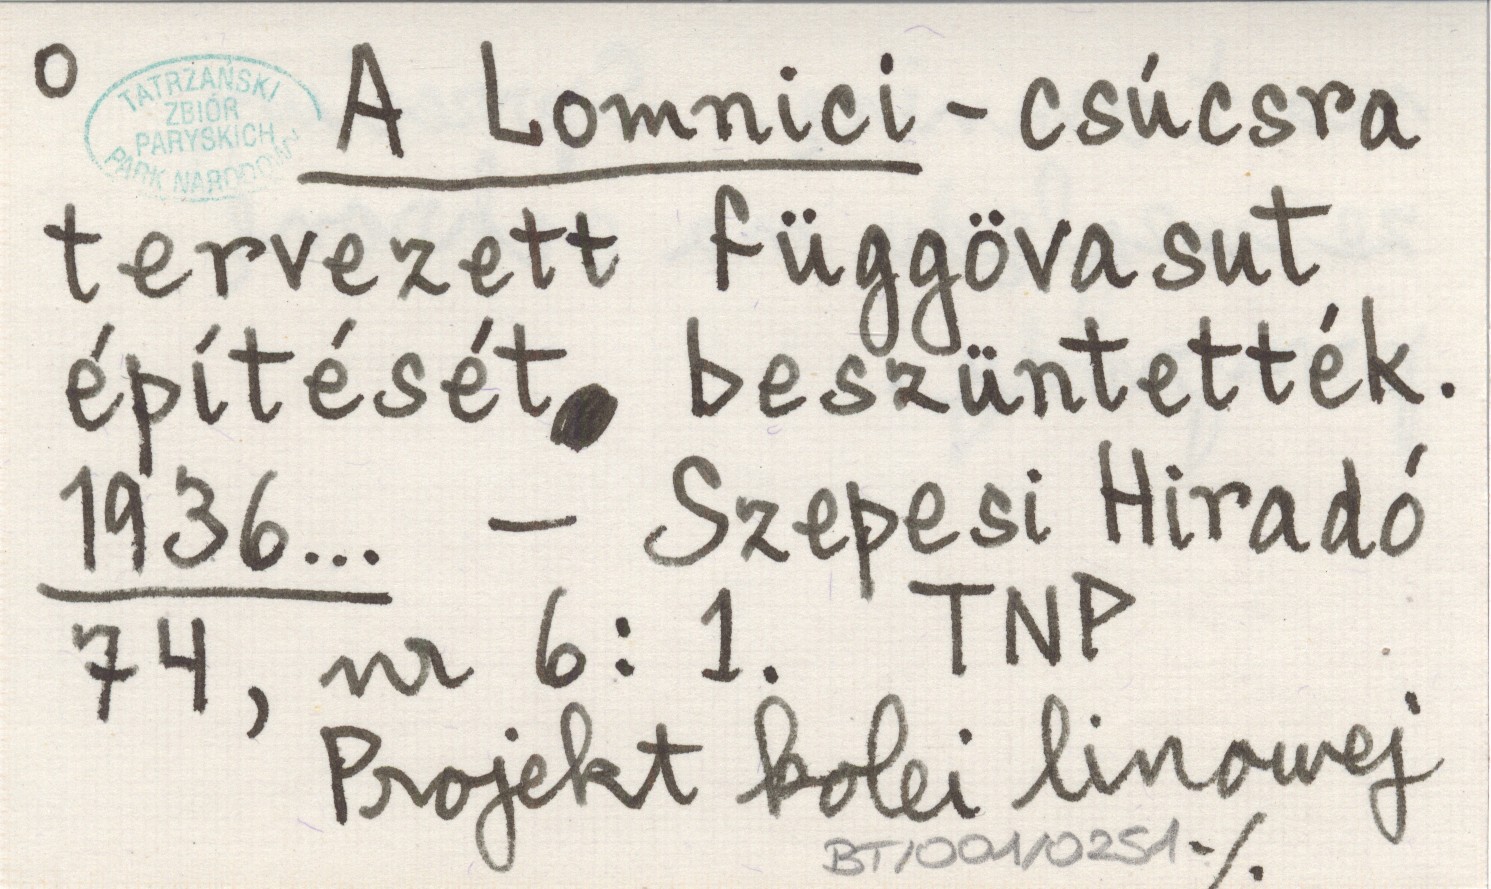 o
TATRZAŃSKI
ZBIÓR
PARYSKICH
PARK NARODOWY
A Lomnici - csúcsra
tervezett függövasut
építését beszüntették.
1936... — Szepesi Hiradó
74, nr 6: 1. TNP
Projekt kolei linowej
BT/001/0251 -/.